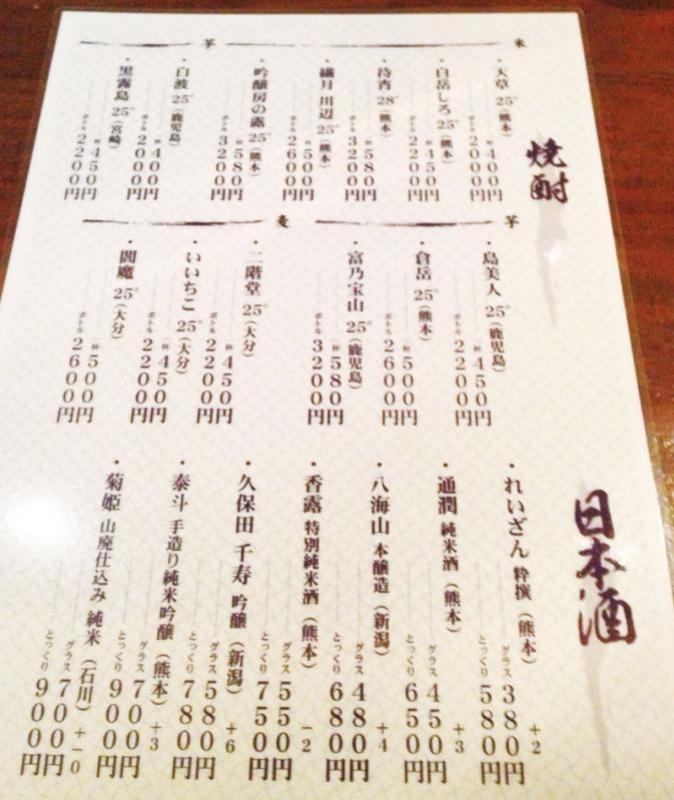 焼酎
米
・天草 25°(熊本)
一杯 400円
ボトル 2000円
・白岳しろ 25°(熊本)
一杯 450円
ボトル 2200円
・待宵 28°(熊本)
一杯 580円
ボトル 3200円
・繊月 川辺 25°(熊本)
一杯 500円
ボトル 2600円
・吟醸房の露 25°(熊本)
一杯 580円
ボトル 3200円
芋
・白波 25°(鹿児島)
一杯 400円
ボトル 2000円
・黒霧島 25°(宮崎)
一杯 450円
ボトル 2200円
芋
・島美人 25°(鹿児島)
一杯 450円
ボトル 2200円
・倉岳 25°(熊本)
一杯 500円
ボトル 2600円
・富乃宝山 25°(鹿児島)
一杯 580円
ボトル 3200円
麦
・二階堂 25°(大分)
一杯 450円
ボトル 2200円
・いいちこ 25°(大分)
一杯 450円
ボトル 2200円
・閻魔 25°(大分)
一杯 500円
ボトル 2600円
日本酒
・れいざん 粋撰(熊本) +2
グラス 380円
とっくり 580円
・通潤 純米酒(熊本) +3
グラス 450円
とっくり 650円
・八海山 本醸造(新潟) +4
グラス 480円
とっくり 680円
・香露 特別純米酒(熊本) -2
グラス 550円
とっくり 750円
・久保田 千寿 吟醸(新潟) +6
グラス 580円
とっくり 780円
・泰斗 手造り純米吟醸(熊本) +3
グラス 700円
とっくり 900円
・菊姫 山廃仕込み 純米(石川) +-0
グラス 700円
とっくり 900円